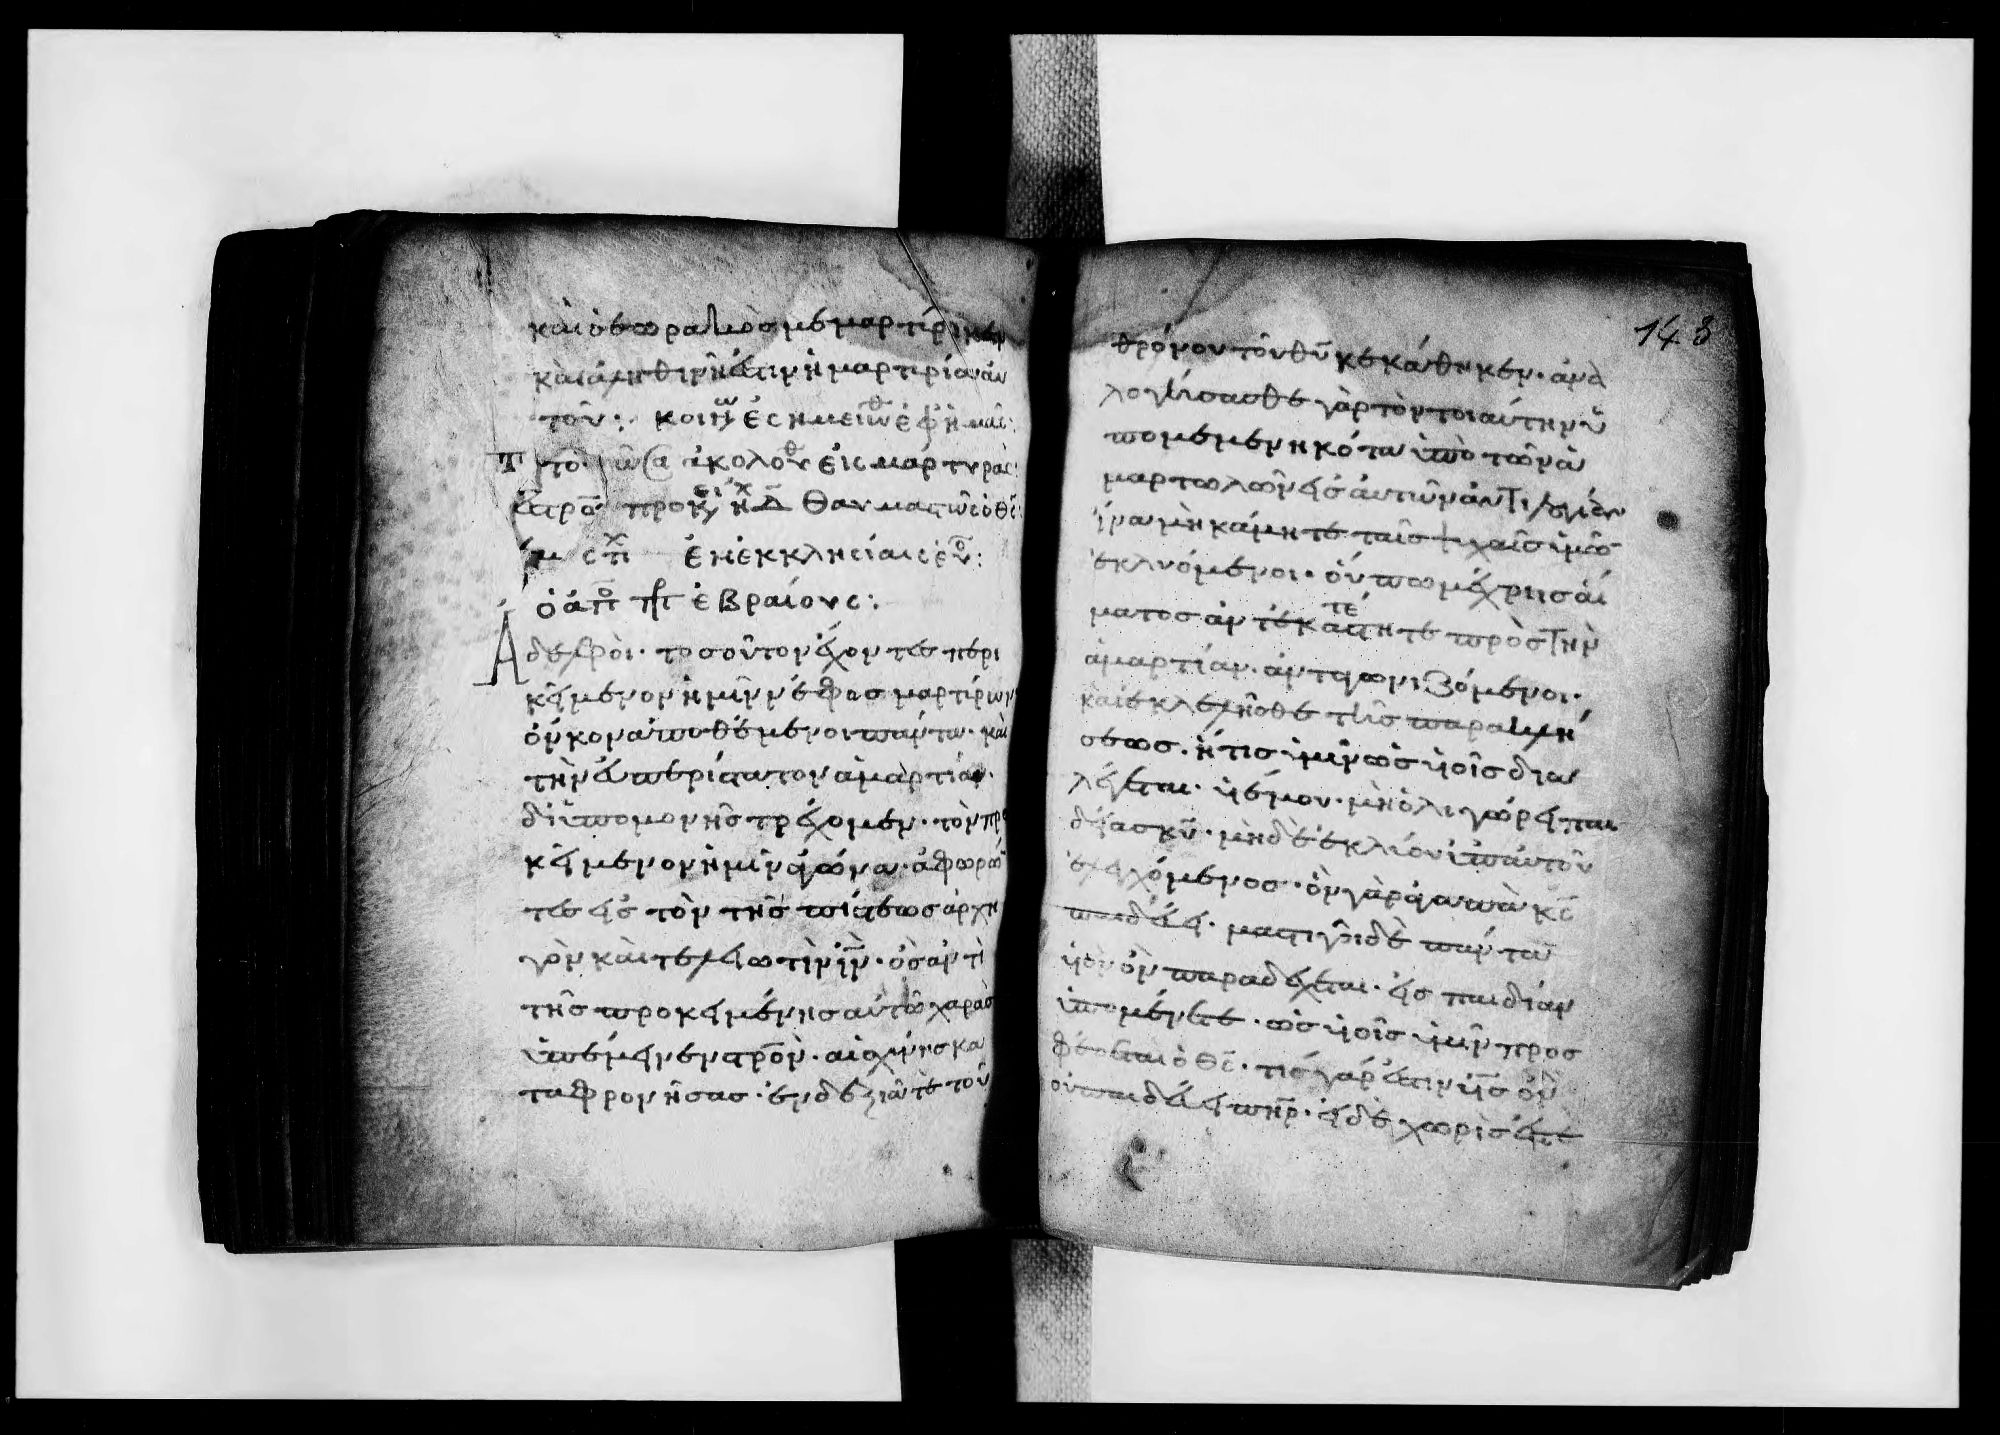 καὶ ὁ ἑωρακὼς μεμαρτίρικεν
καὶ ἀληθινὴ ἐστιν ἡ μαρτιρία αὐ
τοῦ:
ἀκολου εἰς μάρτυρας:
Θαυμαστὸς ὁ θς
ἐν ἐκκλησίαις εὐ:
ὁ ἀπο πρ ἑβραίους:
Ἀ
δελφοὶ· τοσοῦτον ἔχοντες περι
κείμενον ἡμῖν νέφος μαρτίρων
ὄγκον ἀποθέμενοι πάντα· καὶ
τὴν εὐπερίστατον ἁμαρτίαν·
δι ὑπομονῆς τρέχομεν· τὸν προ
κείμενον ἡμῖν ἀγώνα· ἀφωρῶ
τες εἰς τὸν τῆς πίστεως ἀρχη
γὸν καὶ τελειωτὴν ιν· ὃς ἀντὶ
τῆς προκειμένης αὐτῶ χαρᾶς
ὑπέμεινεν στρον· αἰσχύνης κα
ταφρονήσας· ἐν δεξιᾶ τε τοῦ
143
θρόνου τοῦ θυ κεκάθηκεν· ἀνα
λογίσασθε γὰρ τὸν τοιαύτην ὑ
πομεμενηκότα ὑπὸ τῶν ἁ
μαρτωλῶν εἰς αὐτὸν ἀντιλογίαν
ἵνα μὴ κάμητε ταῖς ψυχαῖς ὑμῶ
ἐκλυόμενοι· οὔπω μέχρις αἵ
ματος ἀντεκατέστητε πρὸς τὴν
ἁμαρτίαν· ἀνταγωνιζόμενοι·
καὶ ἐκλέλησθε τῆς παρακλή
σεως· ἥτις ὑμῖν ὡς υἱοῖς δια
λέγεται· υἱέ μου· μὴ ὀλιγώρει παι
δείας κυ· μηδὲ ἐκλύου ὑπ αὐτοῦ
ἐλεγχόμενος· ὃν γὰρ ἀγαπὰ κς
παιδεύει· μαστιγοῖ δὲ πάντα
υἱὸν ὃν παραδέχεται· εἰς παιδίαν
ὑπομένετε· ὡς υἱοῖς ὑμῖν προσ
φέρεται ὁ θς· τίς γάρ ἐστιν υἱς ὃν
οὐ παιδεύει πηρ· εἰ δὲ χωρὶς ἐστὲ